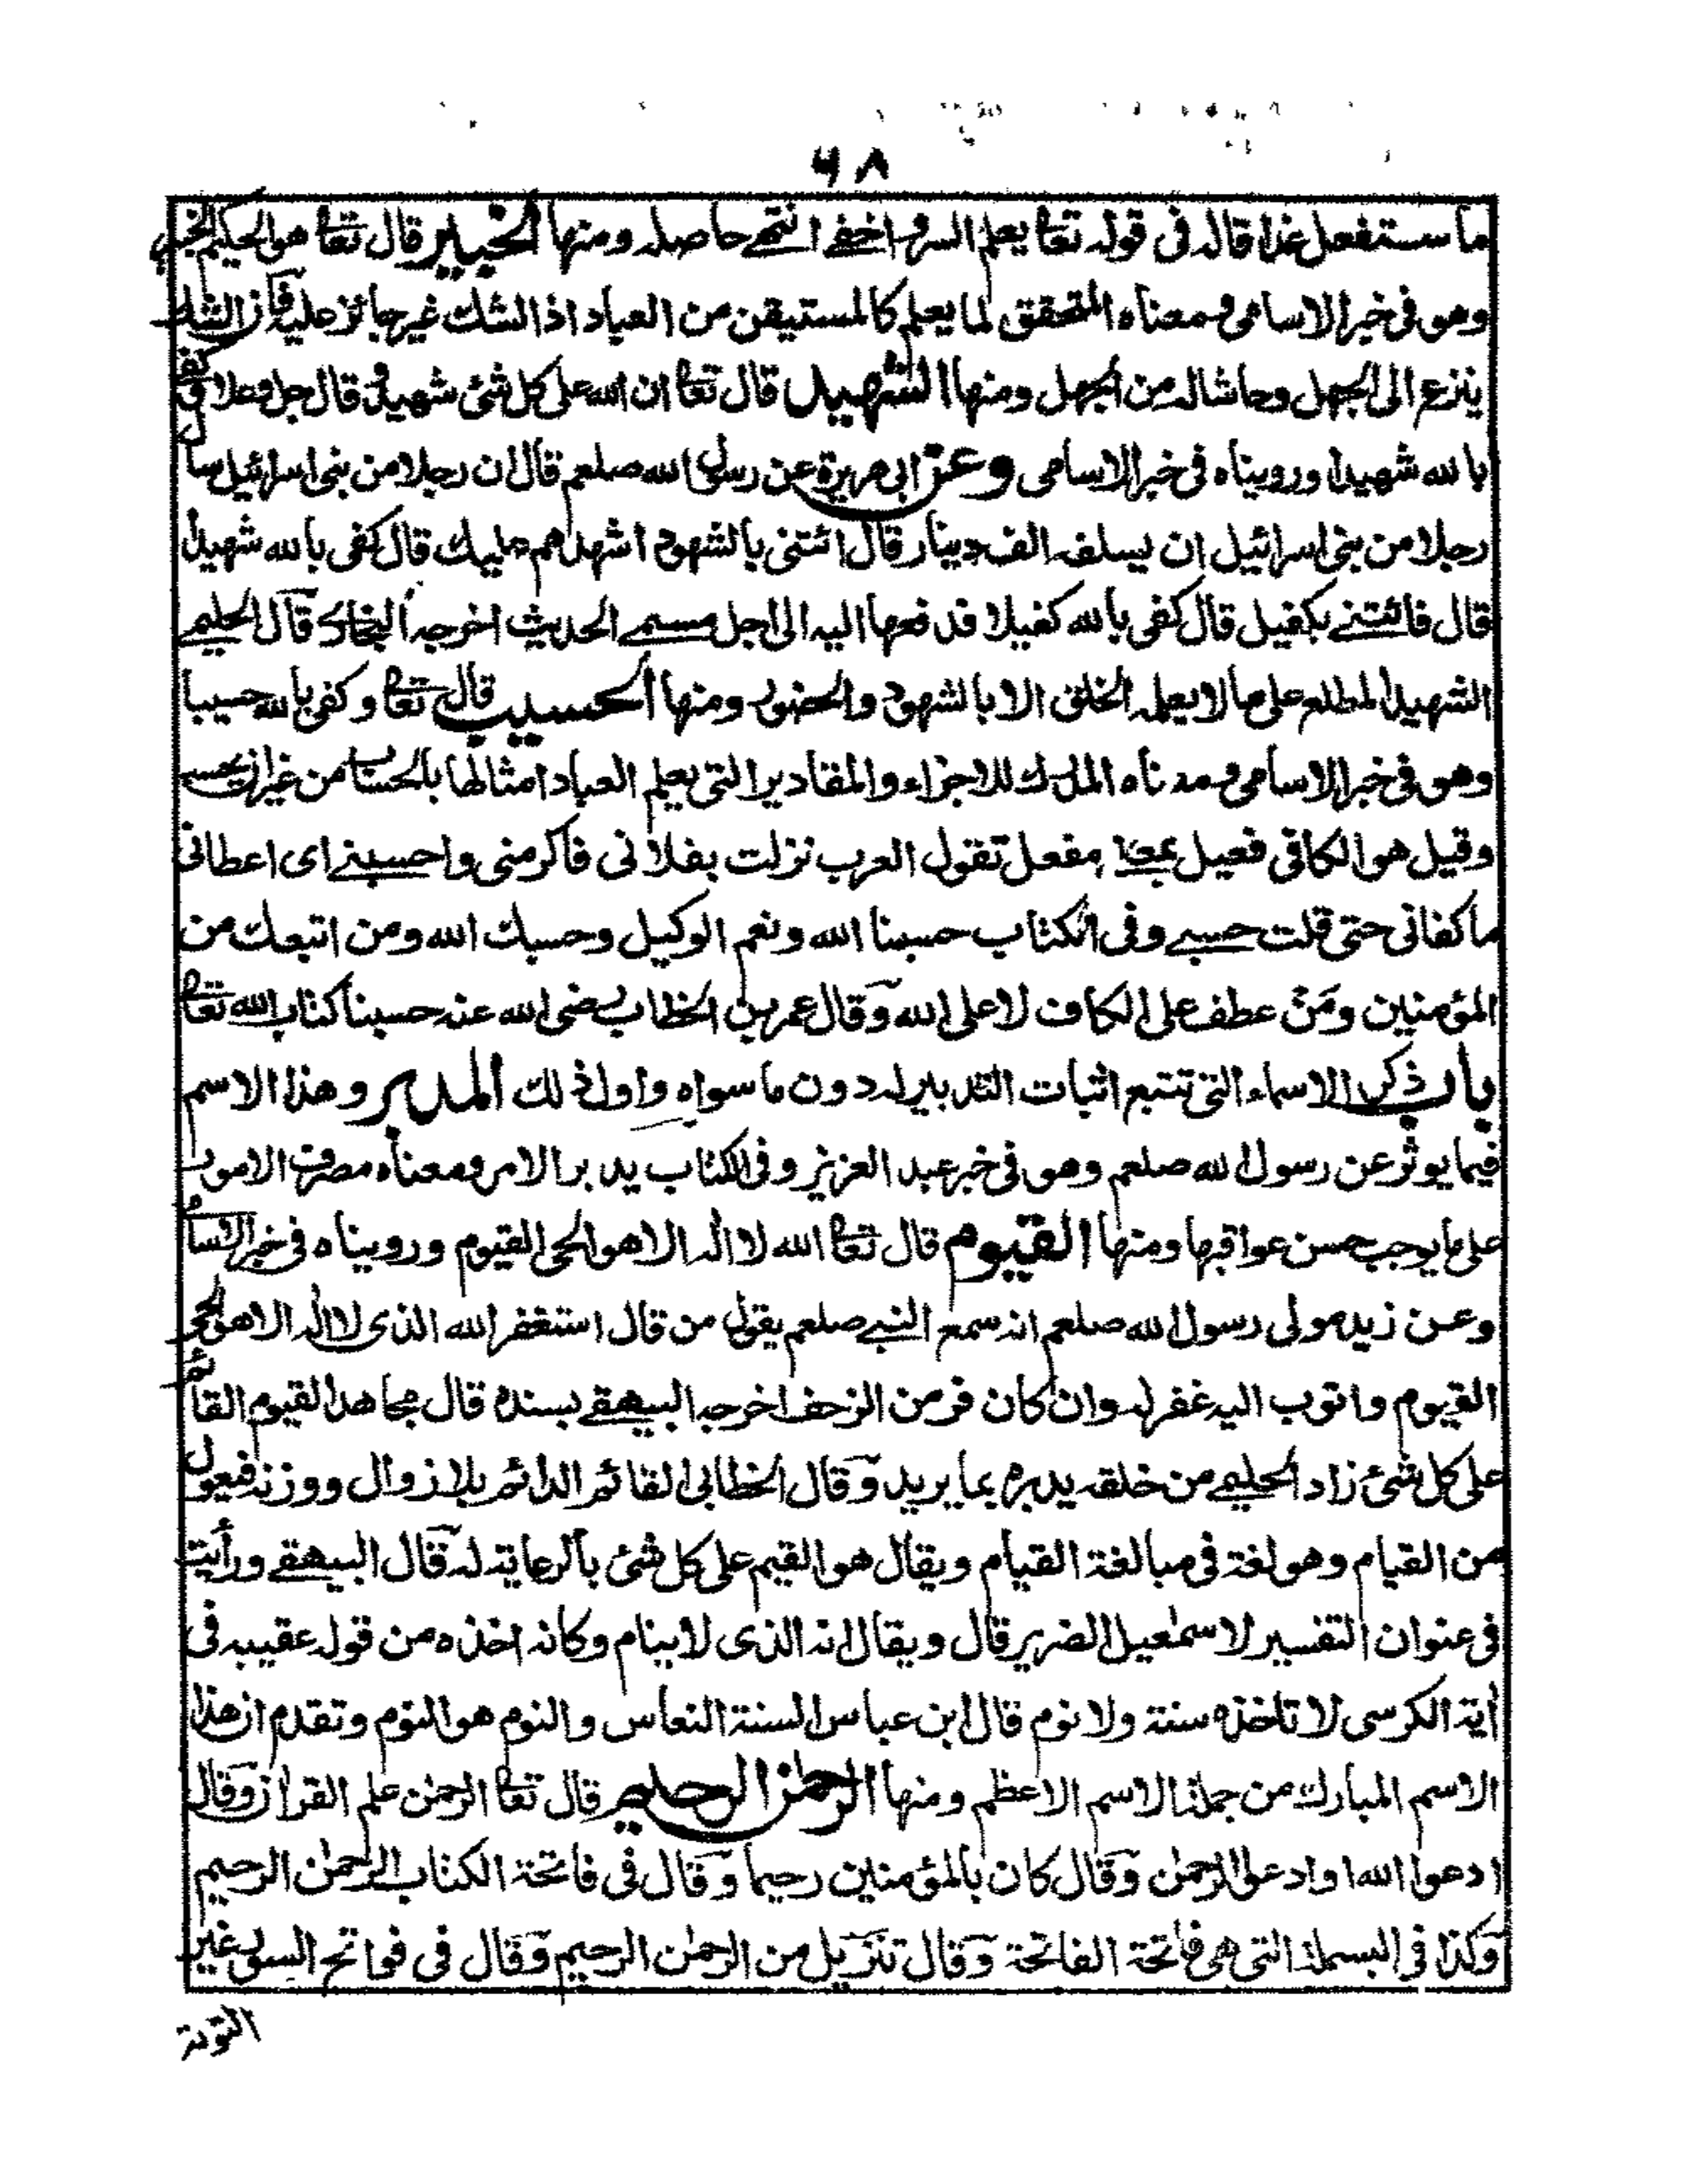 ٦٨
ما ستفعل غدا قاله فى قوله تعا يعلم السر و اخفے انتہے حاصله ومنها الخبير قال تعا هو الحكيم الخبير
وهو فى خبر الاسامى ومعناه المتحقق لما يعلم كالمستيقن من العباد اذ الشك غير جائز عليه فان الشك
ينزع الى الجهل وحاشاله من الجهل ومنها الشهيد قال تعا ان الله على كل شئ شهيد وقال جل وعلا وكفى
بالله شهيدا ورويناه فى خبر الاسامى وعن ابى هريرة عن رسول الله صلعم قال ان رجلا من بنى اسرائيل سأل
رجلا من بنى اسرائيل ان يسلفه الف دينار قال ائتنى بالشهود اشهدهم عليك قال كفى بالله شهيدا
قال فائتنے بكفيل قال كفى بالله كفيلا فدفعها اليه الى اجل مسمے الحديث اخرجه البخارى قال الحليمے
الشهيد المطلع على ما لا يعلمه الخلق الا بالشهود والحضور ومنها الحسيب قال تعا وكفى بالله حسيبا
وهو فى خبر الاسامى ومعناه المدرك للاجزاء والمقادير التى يعلم العباد امثالها بالحساب من غير ان يحسب
وقيل هو الكافى فعيل بمعنے مفعل تقول العرب نزلت بفلانى فاكرمنى واحسبنے اى اعطانى
ما كفانى حتى قلت حسبے وفى الكتاب حسبنا الله ونعم الوكيل وحسبك الله ومن اتبعك من
المؤمنين ومَنْ عطف على الكاف لا على الله وقال عمر بن الخطاب رضى الله عنه حسبنا كتاب الله تعا
باب ذكر الاسماء التى تتبع اثبات التدبير له دون ما سواه واول ذلك المدبر وهذا الاسم
فيما يوثر عن رسول الله صلعم وهو فى خبر عبد العزيز وفى الكتاب يدبر الامر ومعناه مصرف الامور
على ما يوجب حسن عواقبها ومنها القيوم قال تعا الله لا اله الا هو الحى القيوم ورويناه فى خبر الاسامى
وعن زيد مولى رسول الله صلعم انه سمع النبے صلعم يقول من قال استغفر الله الذى لا اله الا هو الحى
القيوم واتوب اليه غفر له وان كان فر من الزحف اخرجه البيهقے بسنده قال مجاهد القيوم القائم
على كل شئ زاد الحليمے من خلقه يدبرهم بما يريد وقال الخطابى القائم الدائم بلا زوال ووزنه فيعول
من القيام وهو لغة فى مبالغة القيام ويقال هو القيم على كل شئ بالرعاية له قال البيهقے ورأيت
فى عنوان التفسير لاسمعيل الضرير قال ويقال انه الذى لا ينام وكانه اخذه من قوله عقيبه فى
أية الكرسى لا تاخذه سنة ولا نوم قال ابن عباس السنة النعاس والنوم هو النوم وتقدم ان هذا
الاسم المبارك من جملة الاسم الاعظم ومنها الرحمن الرحيم قال تعا الرحمن علم القران وقال
ادعوا الله او ادعوا الرحمن وقال كان بالمؤمنين رحيما وقال فى فاتحة الكتاب الرحمن الرحيم
وكذا فى البسملة التى هى فاتحة الفاتحة وقال تنزيل من الرحمن الرحيم وقال فى فواتح السور غير
التوبة